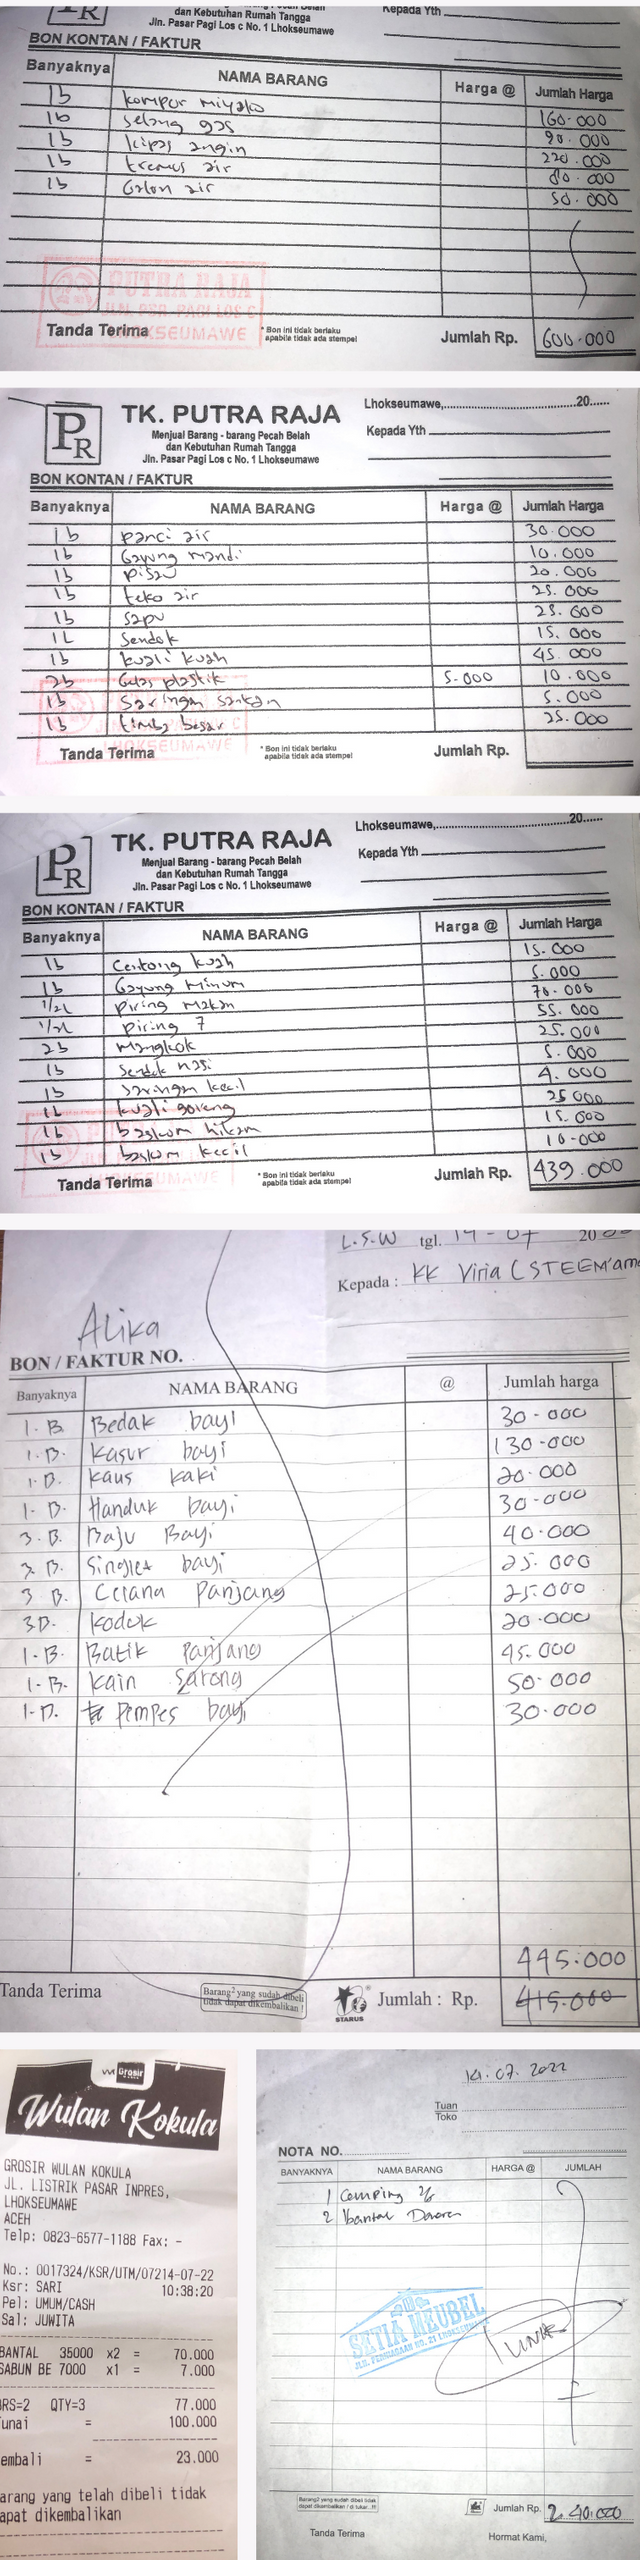 PR
dan Kebutuhan Rumah Tangga
Jln. Pasar Pagi Los c No. 1 Lhokseumawe
Kepada Yth
BON KONTAN / FAKTUR
Banyaknya NAMA BARANG Harga @ Jumlah Harga
1b kompor miyako 160.000
1b selang gas 90.000
1b kipas angin 220.000
1b tremus air 80.000
1b Galon air 50.000
PUTRA RAJA
Tanda Terima
* Bon ini tidak berlaku
apabila tidak ada stempel
Jumlah Rp. 600.000
PR
TK. PUTRA RAJA
Menjual Barang - barang Pecah Belah
dan Kebutuhan Rumah Tangga
Jln. Pasar Pagi Los c No. 1 Lhokseumawe
Lhokseumawe,..........20......
Kepada Yth
BON KONTAN / FAKTUR
Banyaknya NAMA BARANG Harga @ Jumlah Harga
1b panci air 30.000
1b Gayung mandi 10.000
1b pisau 20.000
1b teko air 25.000
1b sapu 25.000
1L sendok 15.000
1b kuali kuah 45.000
2b Gelas plastik 5.000 10.000
1b Saringan santan 5.000
1b timba besar 25.000
Tanda Terima
* Bon ini tidak berlaku
apabila tidak ada stempel
Jumlah Rp.
PR
TK. PUTRA RAJA
Menjual Barang - barang Pecah Belah
dan Kebutuhan Rumah Tangga
Jln. Pasar Pagi Los c No. 1 Lhokseumawe
Lhokseumawe,..........20......
Kepada Yth
BON KONTAN / FAKTUR
Banyaknya NAMA BARANG Harga @ Jumlah Harga
1b Centong kuah 15.000
1b Gayung Minum 5.000
1/2L piring makan 70.000
1/2L piring 7 55.000
2b Mangkok 25.000
1b Sendok nasi 5.000
1b saringan kecil 4.000
1b kuali goreng 25.000
1b baskom hitam 15.000
1b baskom kecil 10.000
Tanda Terima
* Bon ini tidak berlaku
apabila tidak ada stempel
Jumlah Rp. 439.000
L.S.W tgl. 14 - 07 20
Kepada : KK Viria (STEEM'am
Alika
BON / FAKTUR NO.
Banyaknya NAMA BARANG @ Jumlah harga
1.B. Bedak bayi 30.000
1.B. Kasur bayi 130.000
1.B. Kaus kaki 20.000
1.B. Handuk bayi 30.000
3.B. Baju Bayi 40.000
3.B. Singlet bayi 25.000
3.B. Celana Panjang 25.000
3B. Kodok 20.000
1.B. Batik Panjang 45.000
1.B. Kain Sarong 50.000
1.B. Pempes bayi 30.000
445.000
Tanda Terima
Barang² yang sudah dibeli
tidak dapat dikembalikan !
STARUS
Jumlah : Rp. 415.000
Grosir
Wulan Kokula
GROSIR WULAN KOKULA
JL. LISTRIK PASAR INPRES,
LHOKSEUMAWE
ACEH
Telp: 0823-6577-1188 Fax: -
No.: 0017324/KSR/UTM/07214-07-22
Ksr: SARI 10:38:20
Pel: UMUM/CASH
Sal: JUWITA
BANTAL 35000 x2 = 70.000
SABUN BE 7000 x1 = 7.000
RS=2 QTY=3 77.000
unai = 100.000
embali = 23.000
arang yang telah dibeli tidak
apat dikembalikan
14.07.2022
Tuan
Toko
NOTA NO.
BANYAKNYA NAMA BARANG HARGA @ JUMLAH
1
2 bantal
SETIA MEUBEL
JL. PERNIAGAAN NO. 21 LHOKSEUMAWE
Barang2 yang sudah dibeli tidak
dapat dikembalikan / di tukar..!!!
Jumlah Rp. 240.000
Tanda Terima Hormat Kami,